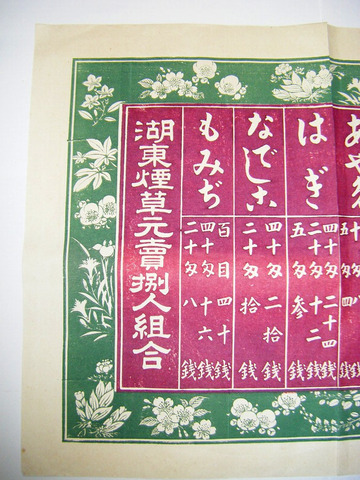 はぎ
四十匁 二十四銭
二十匁 十二銭
五匁 参銭
なでしこ
四十匁 二十銭
二十匁 拾銭
もみぢ
百目 四十銭
四十匁 十六銭
二十匁 八銭
湖東煙草元賣捌人組合